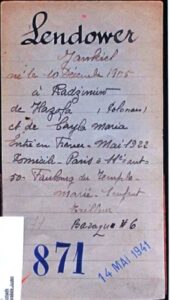 Lendower
Jankiel
né le 10 Décembre 1905
à Radzimin
de Hazofa (Polonais)
et de Cayla Maria
Entré en France = Mai 1922
Domicile = Paris = 11e
50 = Faubourg du Temple =
marié = 1 enfant
Tailleur
Baraque # 6
871
14 MAI 1941